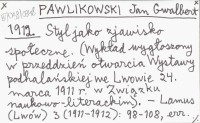 PAWLIKOWSKI Jan Gwalbert
1911. Styl jako zjawisko
społeczne. (Wykład wygłoszony
w przeddzień otwarcia Wystawy
podhalańskiej we Lwowie 24.
marca 1911 r. w Związku
naukowo-literackim). – Lamus
(Lwów) 3 (1911-1912): 98-108, err.